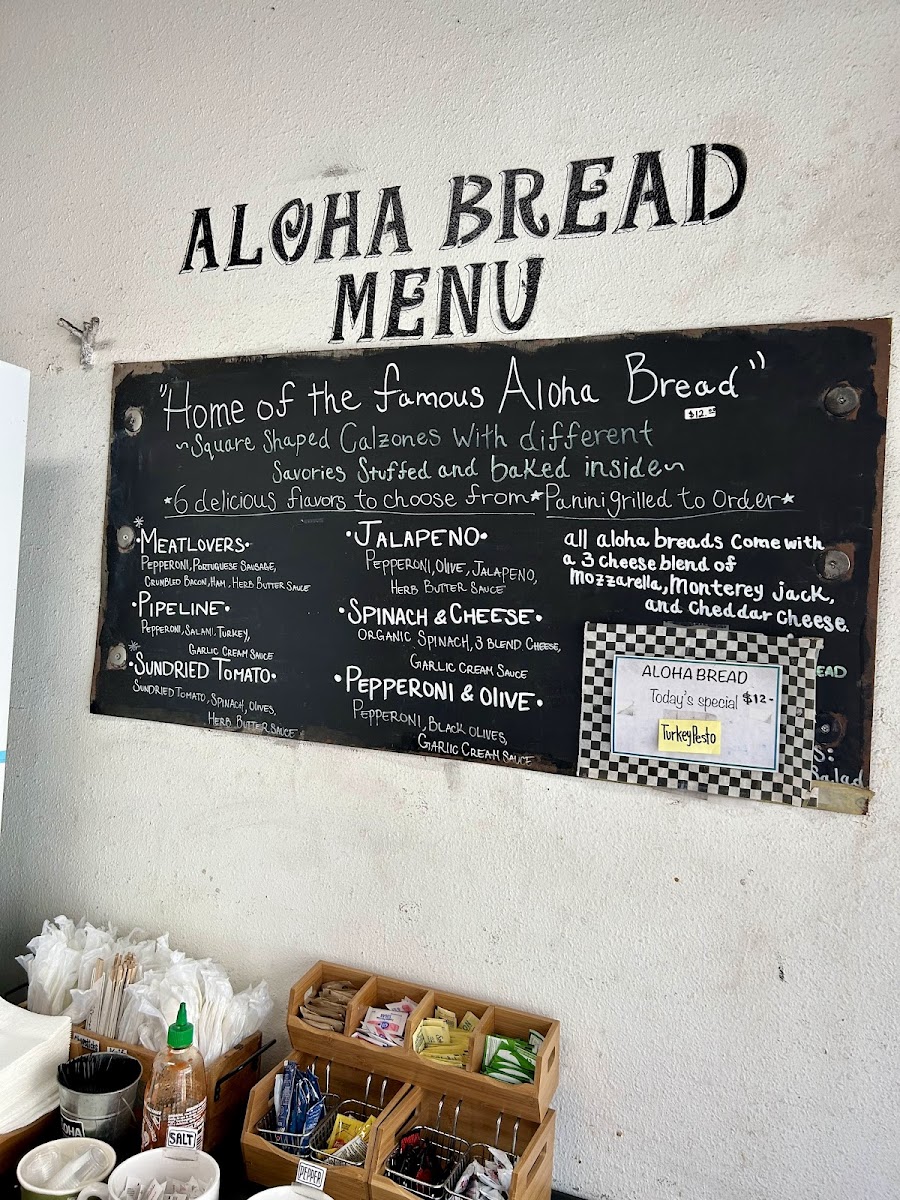 ALOHA BREAD
MENU
"Home of the famous Aloha Bread"
$12.
~Square Shaped Calzones With different
Savories Stuffed and baked inside~
*6 delicious flavors to choose from*Panini grilled to Order*
•MEATLOVERS•
PEPPERONI, PORTUGUESE SAUSAGE,
CRUMBLED BACON, HAM, HERB BUTTER SAUCE
•PIPELINE•
PEPPERONI, SALAMI, TURKEY,
GARLIC CREAM SAUCE
•SUNDRIED TOMATO•
SUNDRIED TOMATO, SPINACH, OLIVES,
HERB BUTTER SAUCE
•JALAPENO•
PEPPERONI, OLIVE, JALAPENO,
HERB BUTTER SAUCE
•SPINACH & CHEESE•
ORGANIC SPINACH, 3 BLEND CHEESE,
GARLIC CREAM SAUCE
•PEPPERONI & OLIVE•
PEPPERONI, BLACK OLIVES,
GARLIC CREAM SAUCE
all aloha breads Come with
a 3 cheese blend of
Mozzarella, Monterey jack,
and cheddar cheese.
EAD
S:
Salad
ALOHA BREAD
Today's special $12-
Turkey Pesto
SALT
PEPPER